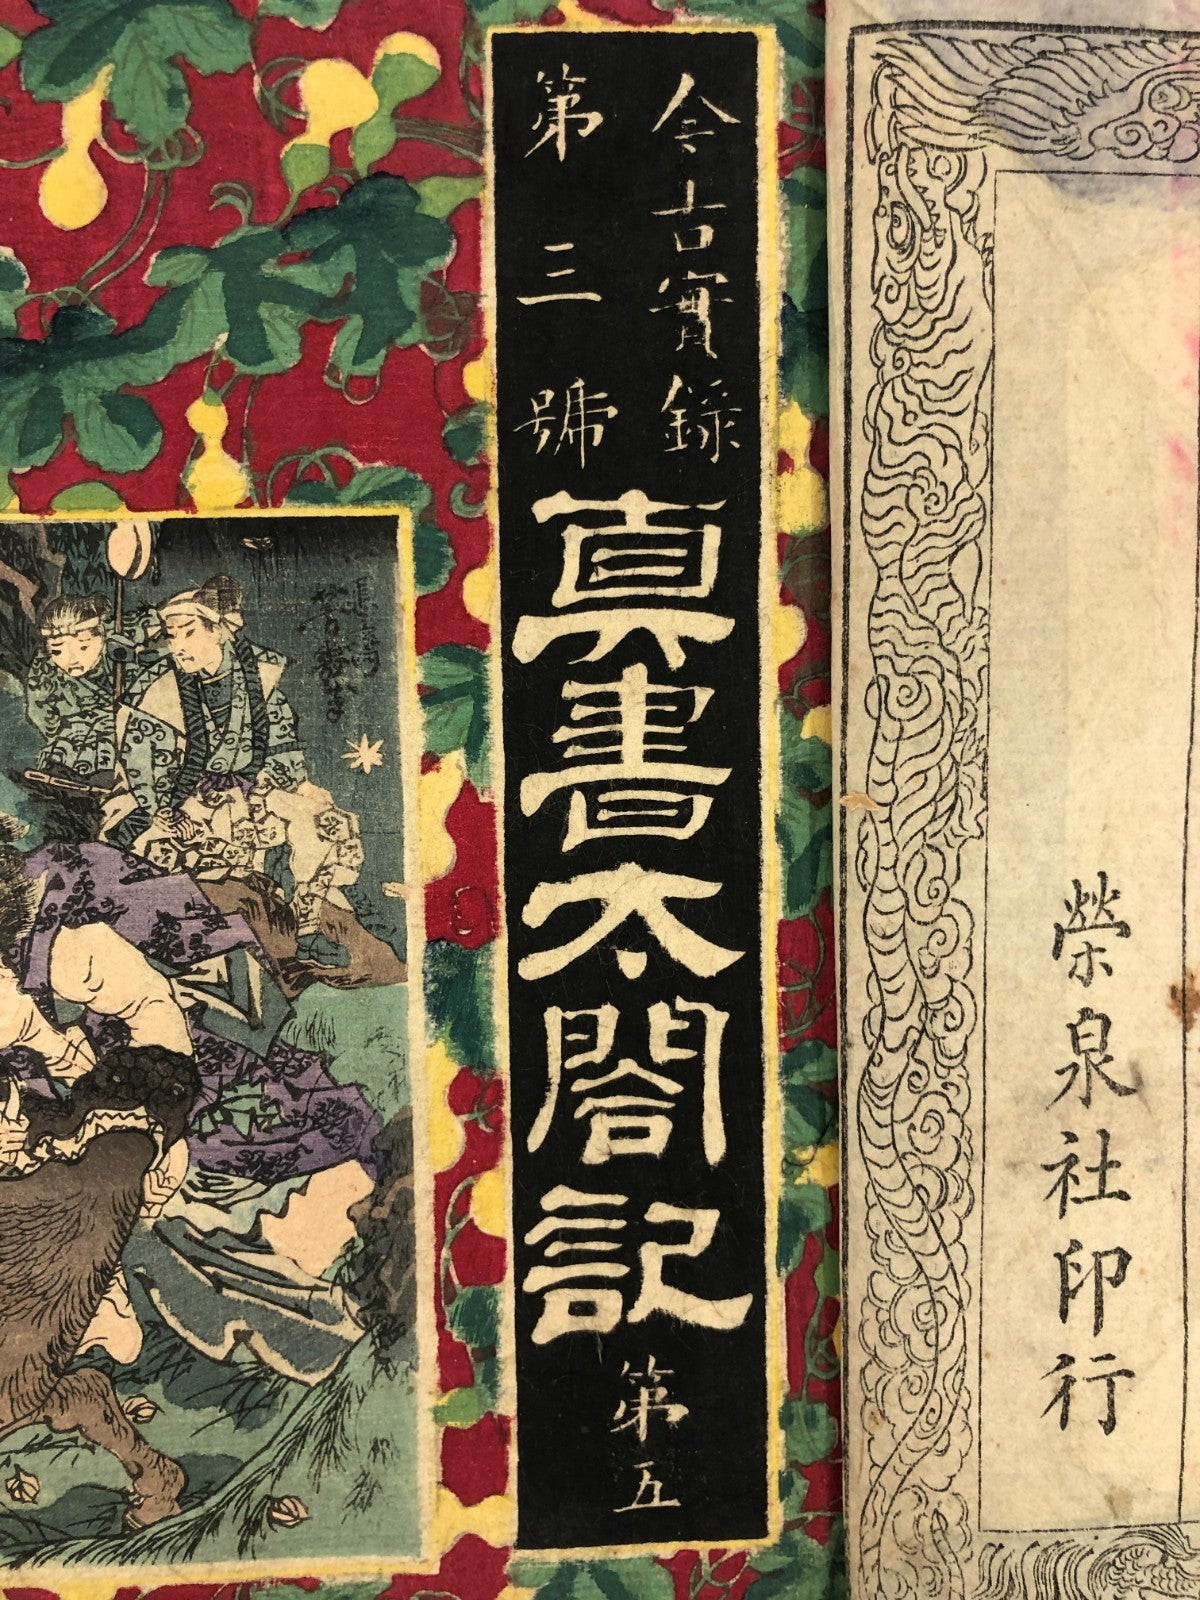 榮泉社印行
今古實録
第三號
真書太閤記
第五